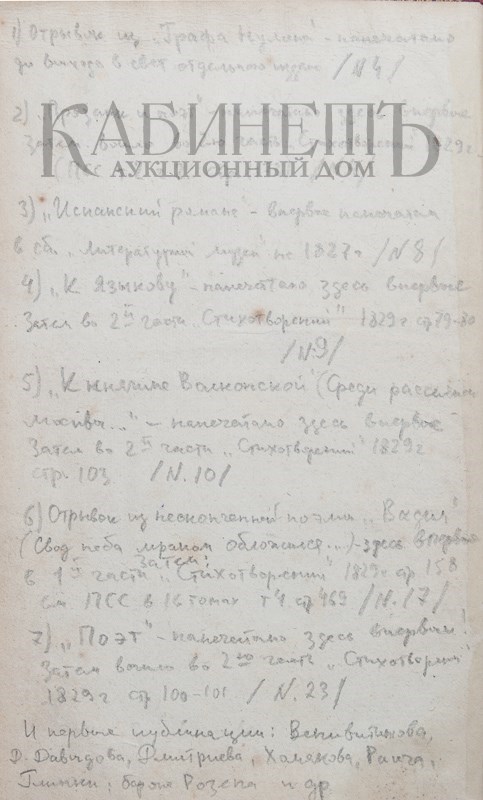 1) Отрывок из „Графа Нулина" - напечатано
до выхода в свет отдельного издан. /N4/
КАБИНЕТЪ
АУКЦИОННЫЙ ДОМ
2) здесь впервые
Затем вошло часть „Стихотворений 1829 г
(ПСС
3) „Испанский романс" - впервые напечатан
в сб. „Литературный музеум" на 1827 г /N8/
4) „К Языкову" - напечатано здесь впервые
Затем во 2ой части „Стихотворений" 1829 г стр 79-80
/N9/
5) „К княгине Волконской" (Среди рассеянной
Москвы..." - напечатано здесь впервые
Затем во 2ой части „Стихотворений" 1829 г
стр. 103 /N.10/
6) Отрывок из неоконченной поэмы „Вадим"
(Свод неба мраком обложился...) - здесь впервые
затем
в 1ой части „Стихотворений" 1829 г стр 158
см ПСС в 16 томах т 4 стр 469 /N.17/
7) „Поэт" - напечатано здесь впервые!
Затем вошло во 2ую часть „Стихотворений"
1829 г стр 100-101 /N.23/
И первые публикации: Веневитинова,
Д. Давыдова, Дмитриева, Хомякова, Раича,
Глинки, барона Розена и др.